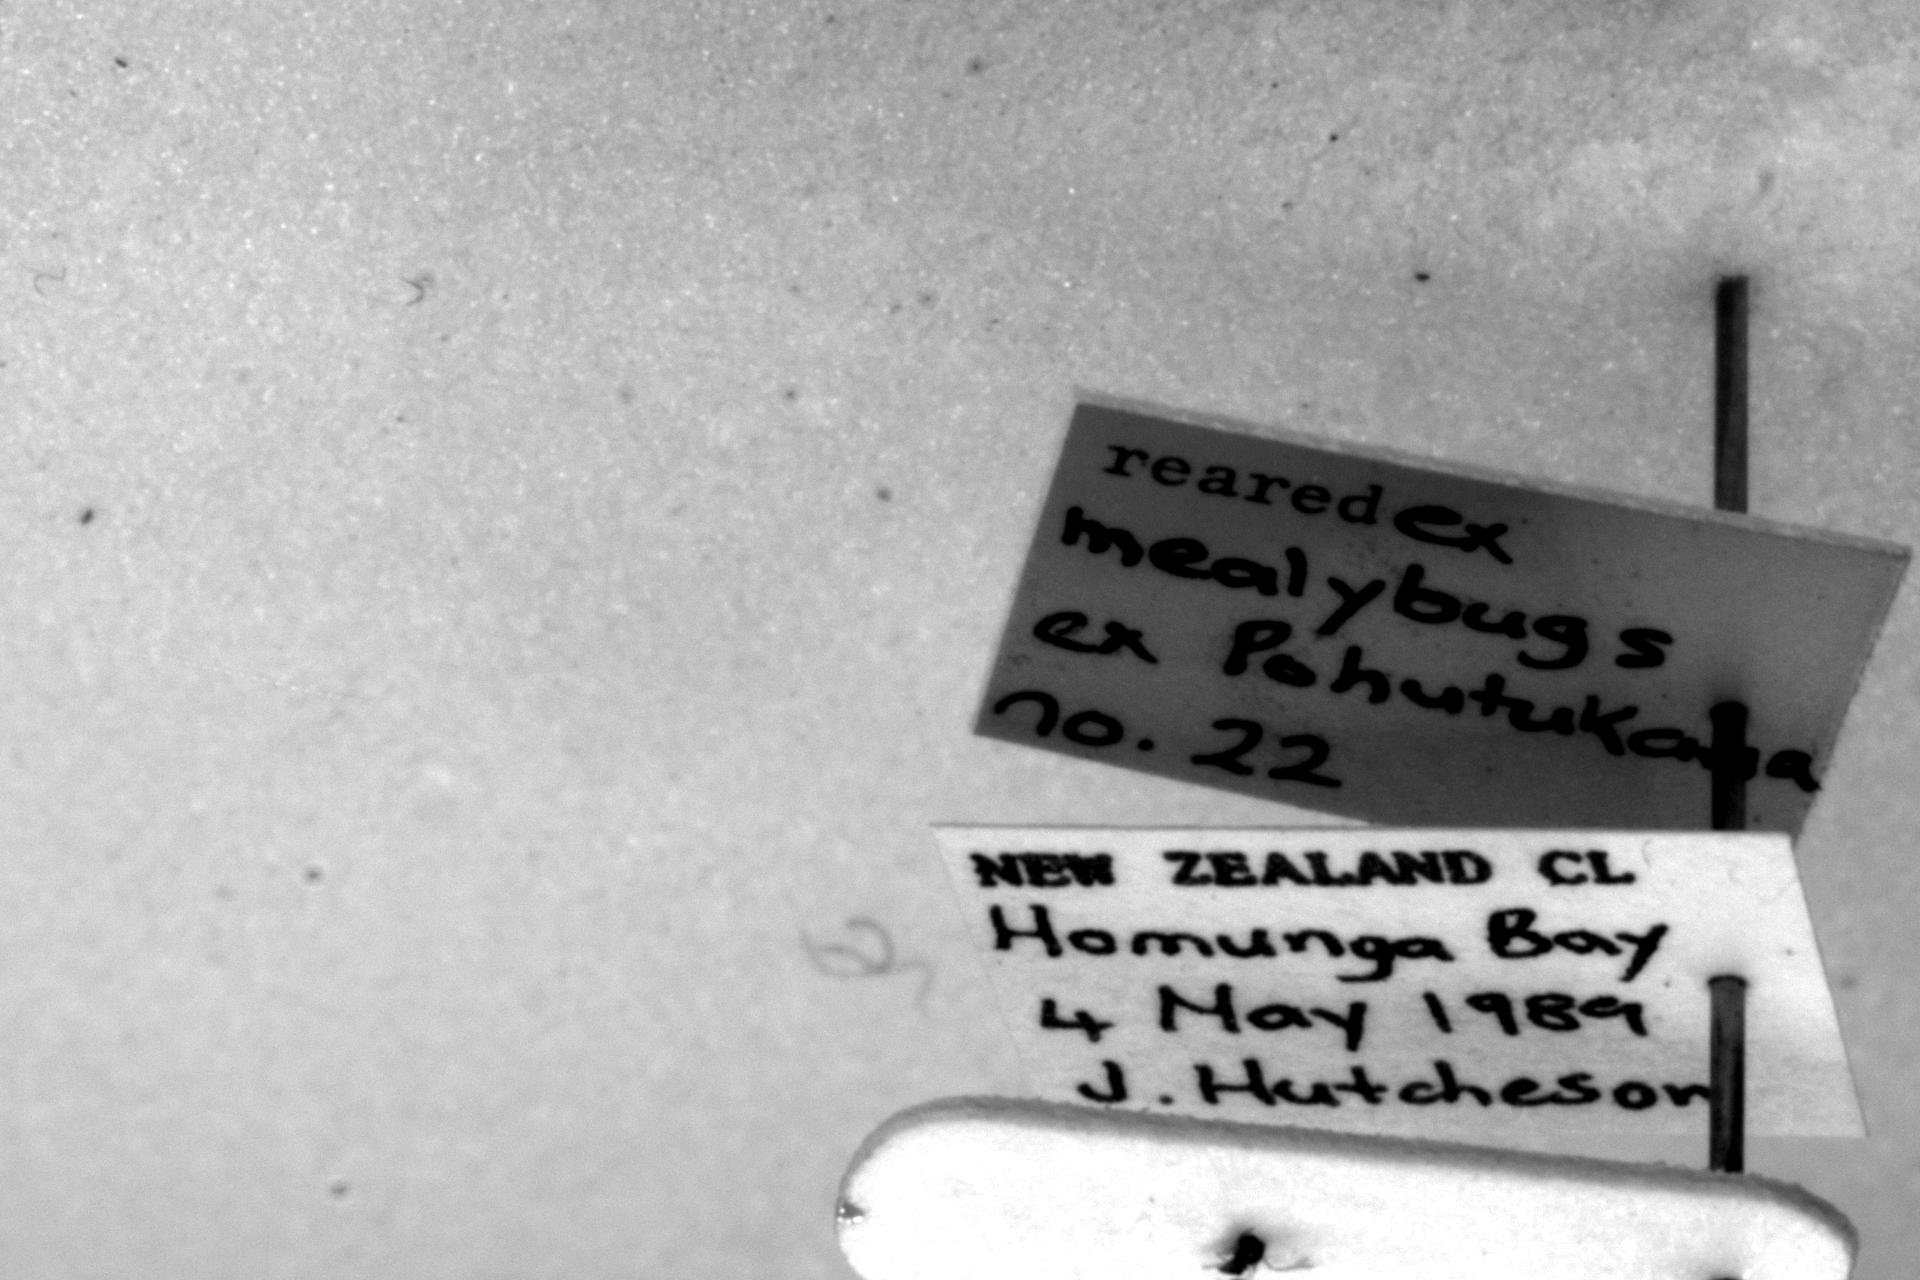 reared ex
mealybugs
ex Pohutukawa
no. 22
NEW ZEALAND CL
Homunga Bay
4 May 1989
J. Hutcheson